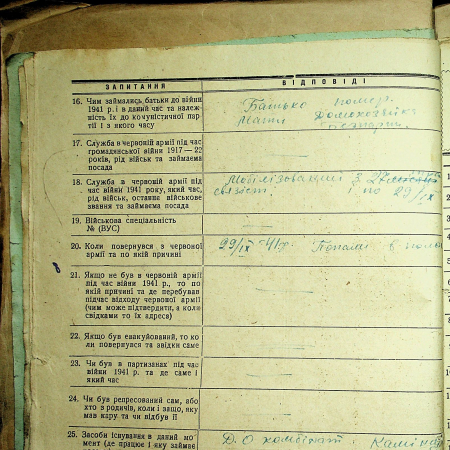 ЗАПИТАННЯ
ВІДПОВІДІ
16. Чим займались батьки до війни
1941 р. і в даний час та належ-
ність їх до комуністичної пар-
тії і з якого часу
Батько помер.
Мати домохозяйка
безпарт.
17. Служба в червоній армії під час
громадянської війни 1917—22
років, рід військ та займаєма
посада
18. Служба в червоній армії під
час війни 1941 року, який час,
рід військ, останнє військове
звання та займаєма посада
Мобілізований з 27
связіст і по 29/IX
19. Військова спеціальність
№ (ВУС)
20. Коли повернувся з червоної
армії та по якій причині
29/IX 41 р. Попали в
21. Якщо не був в червоній армії
під час війни 1941 р., то по
якій причині та де перебував
підчас відходу червоної армії
(чим може підтвердити, а коли
свідками то їх адреса)
22. Якщо був евакуйований, то ко-
ли повернувся та звідки саме
23. Чи був в партизанах під час
війни 1941 р. та де саме і
який час
24. Чи був репресований сам, або
хто з родичів, коли і защо, яку
мав кару та чи відбув її
25. Засоби існування в даний мо-
мент (де працює і яку займає
Д. О комбінат